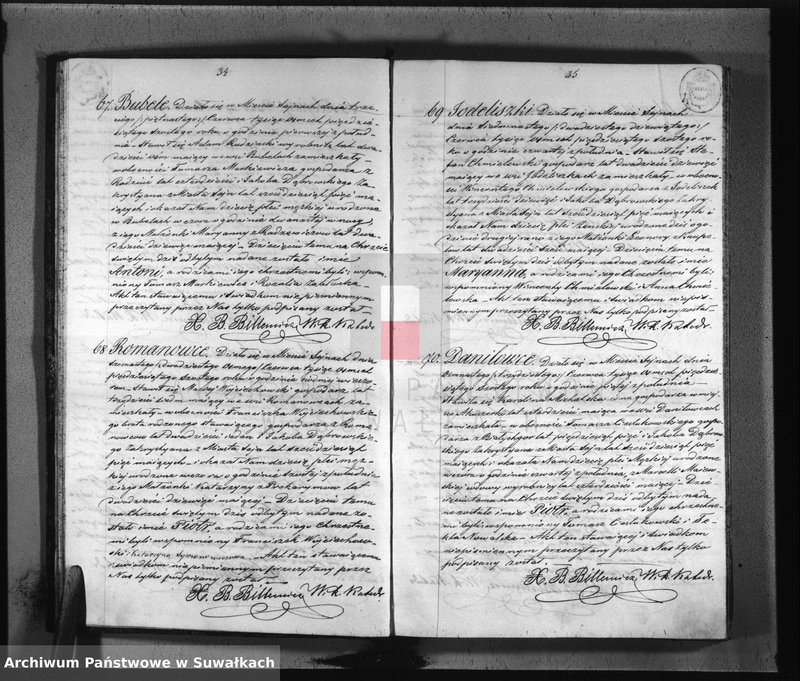 34
67 Bubele. Działo się w Mieście Sejnach dnia trze-
Czerwca tysiąc ośmset pięćdzie-
siątego szóstego roku o godzinie pierwszej z połud-
nia. Stawił się Adam Rudzicki wyrobnik lat dwa-
dzieścia ośm mający we wsi Bubelach zamieszkały
w obecności Tomasza Markiewicza gospodarza z
lat czterdzieści i Jakóba Dąbrowskiego Za-
krystyana z Miasta Sejn lat sześćdziesiąt pięć ma-
jących i okazał Nam dziecię płci męzkiej urodzone
w Bubelach w czora o godzinie dwunastej w nocy
z jego Małżonki Maryanny z lat dwa-
dzieścia dziewięć mającej. Dziecięciu temu na Chrzcie
świętym dziś odbytym nadane zostało imie
Antoni, a rodzicami jego chrzestnemi byli wspom-
niony Tomasz Markiewicz i Rozalia
Akt ten stawającemu i świadkom niepiśmiennym
przeczytany przez Nas tylko podpisany został
X. B. Billewicz W. K. Kated.
68 Romanowce. Działo się w Mieście Sejnach dnia
szesnastego /dwudziestego ósmego/ Czerwca tysiąc ośmset
pięćdziesiątego szóstego roku o godzinie siódmej wieczo-
rem. Stawił się Maciej Wojciechowski gospodarz lat
trzydzieści siedm mający we wsi Romanowcach za-
mieszkały w obecności Franciszka Wojciechowskie-
go brata rodzonego stawającego gospodarza z Roma-
nowców lat dwadzieścia i Jakóba Dąbrowskie-
go Zakrystyana z Miasta Sejn lat sześćdziesiąt
pięć mających i okazał Nam dziecię płci męz-
kiej urodzone w czora o godzinie szóstej z południa
z jego Małżonki Katarzyny z lat
dwadzieścia dziewięć mającej. Dziecięciu temu
na Chrzcie świętym dziś odbytym nadane zo-
stało imie Piotr, a rodzicami jego chrzestne-
mi byli wspomniony Franciszek Wojciechow-
ski i Katarzyna Akt ten stawającemu
i świadkom niepiśmiennym przeczytany przez
Nas tylko podpisany został
X. B. Billewicz W. K. Kated.
35
69 Jodeliszki. Działo się w Mieście Sejnach
dnia siedmnastego /dwudziestego dziewiątego/
Czerwca tysiąc ośmset pięćdziesiątego szóstego ro-
ku o godzinie czwartej z południa. Stawił się Ste-
fan Chmielewski gospodarz lat dwadzieścia dziewięć
mający we wsi Jodeliszkach zamieszkały w obecno-
ści Wincentego Chmielewskiego gospodarza z Jodeliszek
lat trzydzieści dziewięć i Jakóba Dąbrowskiego Zakry-
styana z Miasta Sejn lat sześćdziesiąt pięć mających i
okazał Nam dziecię płci żeńskiej urodzone dziś o go-
dzinie drugiej rano z jego Małżonki
lat dwadzieścia sześć mającej. Dziecięciu temu na
Chrzcie świętym dziś odbytym nadane zostało imie
Maryanna, a rodzicami jego Chrzestnemi byli
wspomniony Wincenty Chmielewski i Anna Chmie-
lewska. Akt ten stawającemu i świadkom niepiś-
miennym przeczytany przez Nas tylko podpisany został
X. B. Billewicz W. K. Kated.
70. Daniłowce. Działo się w Mieście Sejnach dnia
ośmnastego /trzydziestego/ Czerwca tysiąc ośmset pięćdzie-
siątego szóstego roku o godzinie piątej z południa
Stawiła się Karolina
lat czterdzieści mająca we wsi Daniłowcach
zamieszkała, w obecności Tomasza gospo-
darza z lat pięćdziesiąt pięć i Jakóba Dąbrow-
skiego Zakrystyana z Miasta Sejn lat sześćdziesiąt pięć
mających i okazała Nam dziecię płci męzkiej urodzone
wczora o godzinie czwartej z południa, z
wdowy wyrobnicy lat czterdzieści mającej. Dzie-
cięciu temu na Chrzcie świętym dziś odbytym nada-
ne zostało imie Piotr, a rodzicami jego chrzestne-
mi byli: wspomniony Tomasz i Te-
kla Nowalska. Akt ten stawającej i świadkom
niepiśmiennym przeczytany przez Nas tylko
podpisany został
X. B. Billewicz W. K. Kated.
Archiwum Państwowe w Suwałkach